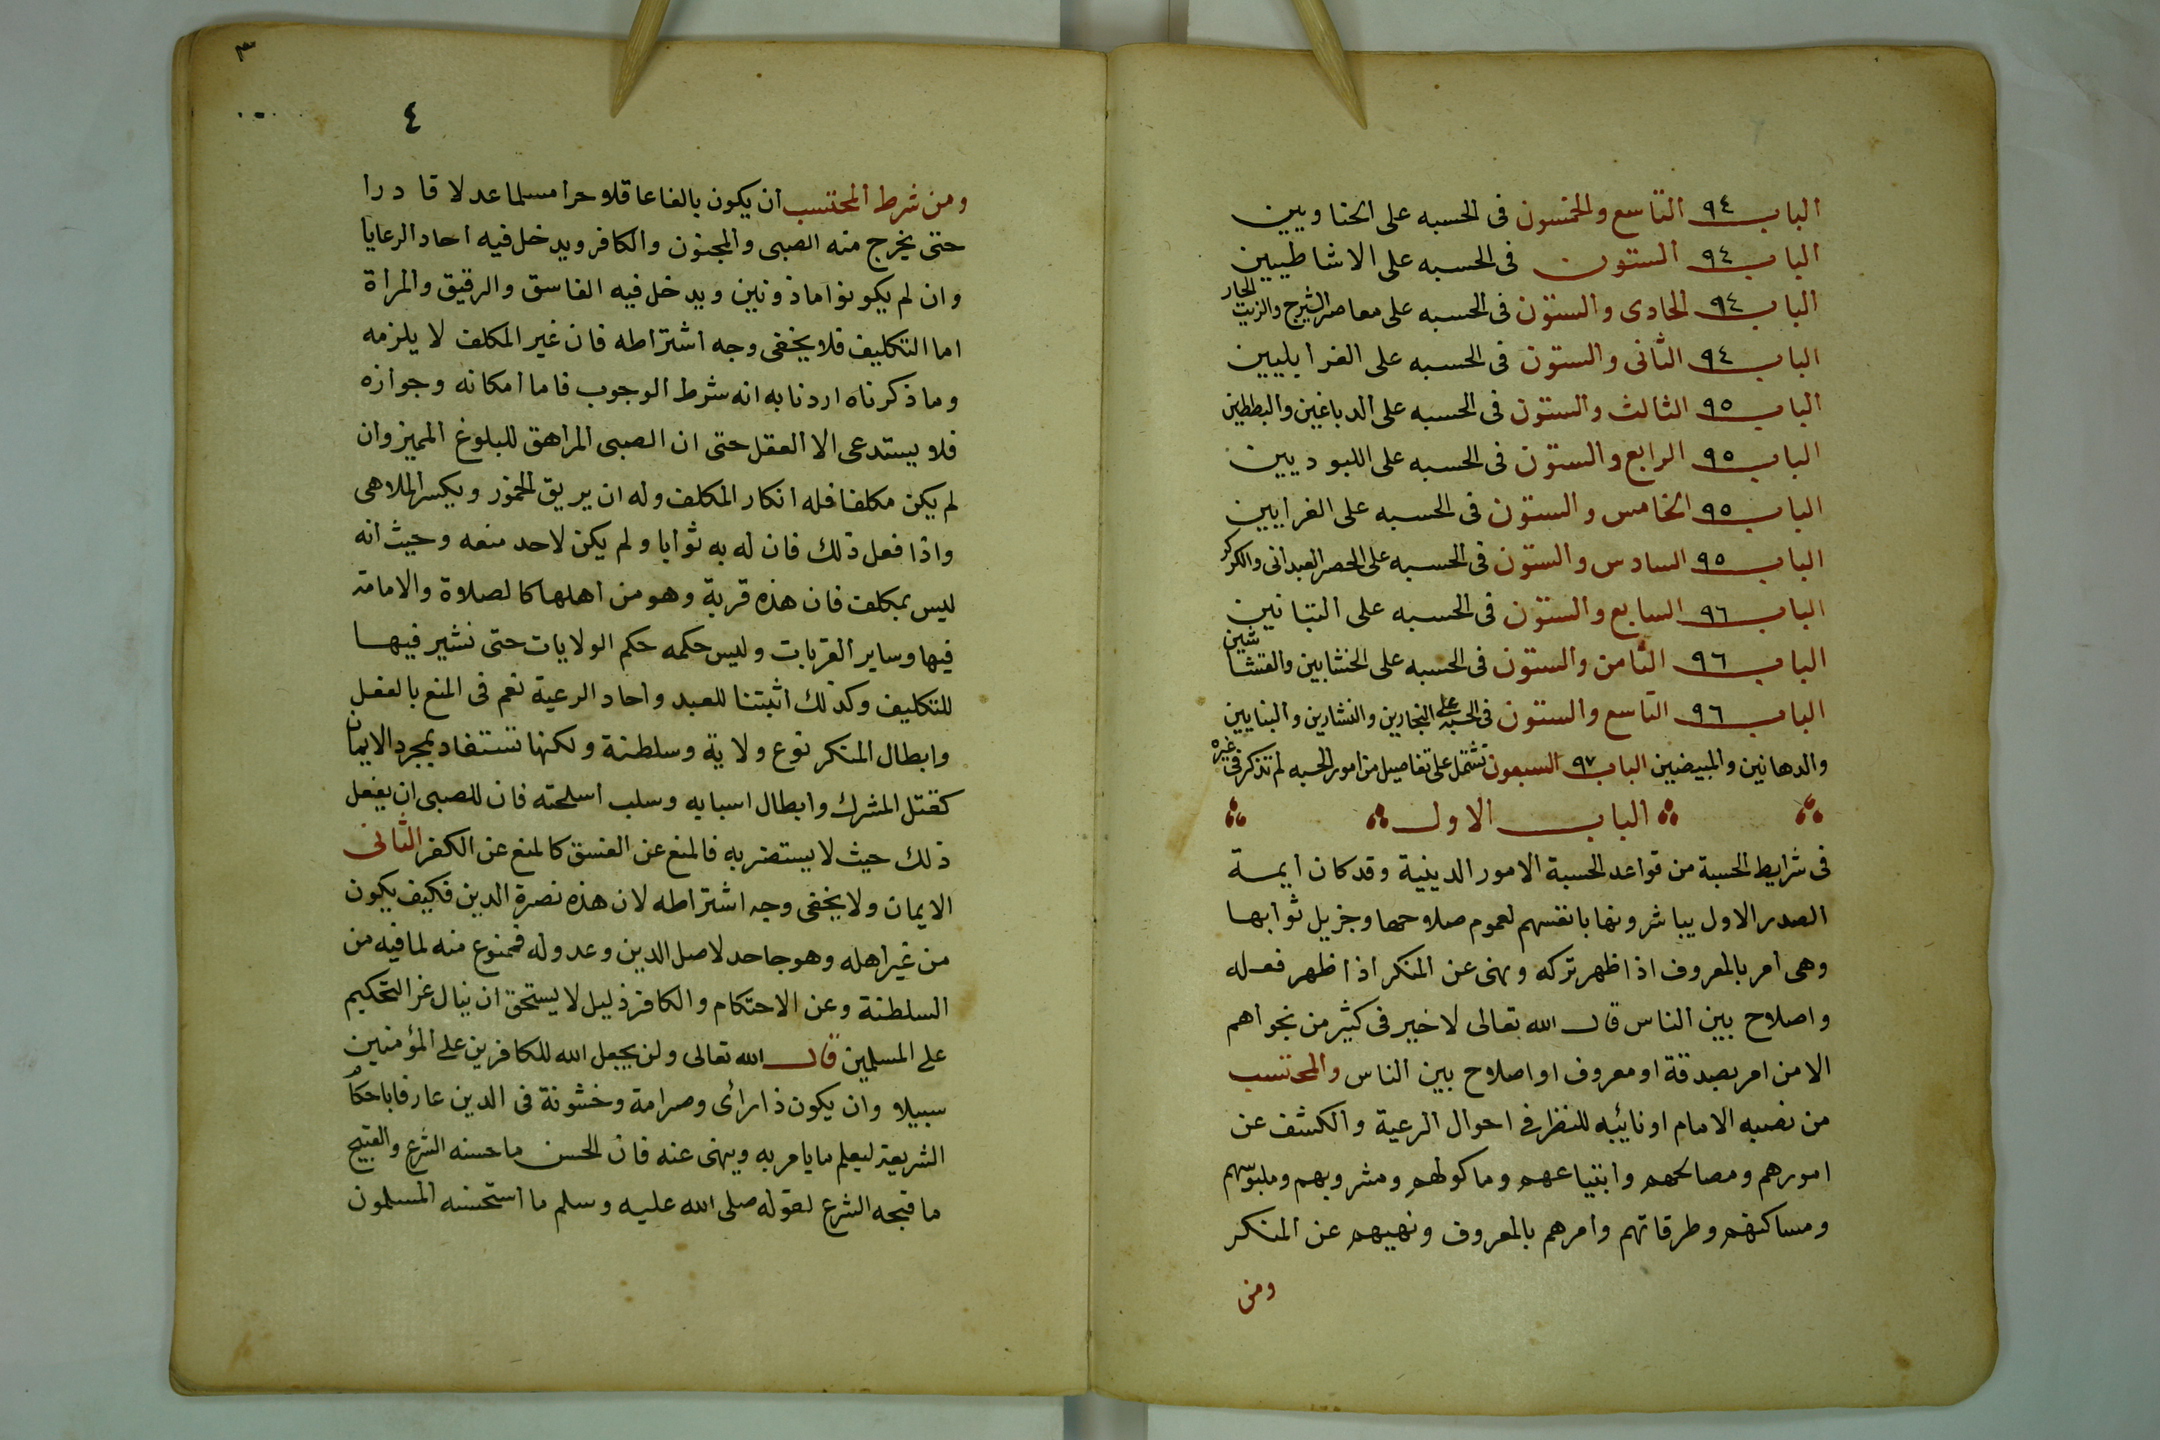 الباب ٩٤ التاسع والخمسون فى الحسبه على الحناويين
الباب ٩٤ الستون فى الحسبه على الاشاطيين
الباب ٩٤ الحادى والستون فى الحسبه على معاصر الشيرج والزيت الحار
الباب ٩٤ الثانى والستون فى الحسبه على الغرابليين
الباب ٩٥ الثالث والستون فى الحسبه على الدباغين والبططين
الباب ٩٥ الرابع والستون فى الحسبه على اللبوديين
الباب ٩٥ الخامس والستون فى الحسبه على الفرايين
الباب ٩٥ السادس والستون فى الحسبه على الحصر العبدانى والكركر
الباب ٩٦ السابع والستون فى الحسبه على التبانين
الباب ٩٦ الثامن والستون فى الحسبه على الخشابين والقشاشين
الباب ٩٦ التاسع والستون فى الحسبه على النجارين والنشارين والبنايين
والدهانين والمبيضين الباب ٩٧ السبعون تشتمل على تفاصيل من امور الحسبه لم تذكر فى غيره
الباب الاول
فى شرايط الحسبة من قواعد الحسبة الامور الدينية وقد كان ايمة
الصدر الاول يباشرونها بانفسهم لعموم صلاحها وجزيل ثوابها
وهى امر بالمعروف اذا ظهر تركه ونهى عن المنكر اذا ظهر فعله
واصلاح بين الناس قال الله تعالى لا خير فى كثير من نجواهم
الا من امر بصدقة او معروف او اصلاح بين الناس والمحتسب
من نصبه الامام او نائبه للنظر فى احوال الرعية والكشف عن
امورهم ومصالحهم وابتياعهم وماكولهم ومشروبهم وملبوسهم
ومساكنهم وطرقاتهم وامرهم بالمعروف ونهيهم عن المنكر
ومن
٣
٤
ومن شرط المحتسب ان يكون بالغا عاقلا حرا مسلما عدلا قادرا
حتى يخرج منه الصبى والمجنون والكافر ويدخل فيه احاد الرعايا
وان لم يكونوا ماذونين ويدخل فيه الفاسق والرقيق والمراة
اما التكليف فلا يخفى وجه اشتراطه فان غير المكلف لا يلزمه
وما ذكرناه اردنا به انه شرط الوجوب فاما امكانه وجوازه
فلا يستدعى الا العقل حتى ان الصبى المراهق للبلوغ المميز وان
لم يكن مكلفا فله انكار المكلف وله ان يريق الخمور ويكسر الملاهى
واذا فعل ذلك فان له به ثوابا ولم يكن لاحد منعه وحيث انه
ليس بمكلف فان هذه قربة وهو من اهلها كالصلاة والامامة
فيها وساير القربات وليس حكمه حكم الولايات حتى نشير فيها
للتكليف وكذلك اثبتنا للعبد واحاد الرعية نعم فى المنع بالفعل
وابطال المنكر نوع ولاية وسلطنة ولكنها تستفاد بمجرد الايمان
كقتل المشرك وابطال اسبابه وسلب اسلحته فان للصبى ان يفعل
ذلك حيث لا يستضر به فالمنع عن الفسق كالمنع عن الكفر الثانى
الايمان ولا يخفى وجه اشتراطه لان هذه نصرة الدين فكيف يكون
من غير اهله وهو جاحد لاصل الدين وعدو له فممنوع منه لما فيه من
السلطنة وعن الاحتكام والكافر ذليل لا يستحق ان ينال عز التحكيم
على المسلمين قال الله تعالى ولن يجعل الله للكافرين على المؤمنين
سبيلا وان يكون ذا راى وصرامة وخشونة فى الدين عارفا باحكام
الشريعة ليعلم ما يامر به وينهى عنه فان الحسن ما حسنه الشرع والقبيح
ما قبحه الشرع لقوله صلى الله عليه وسلم ما استحسنه المسلمون